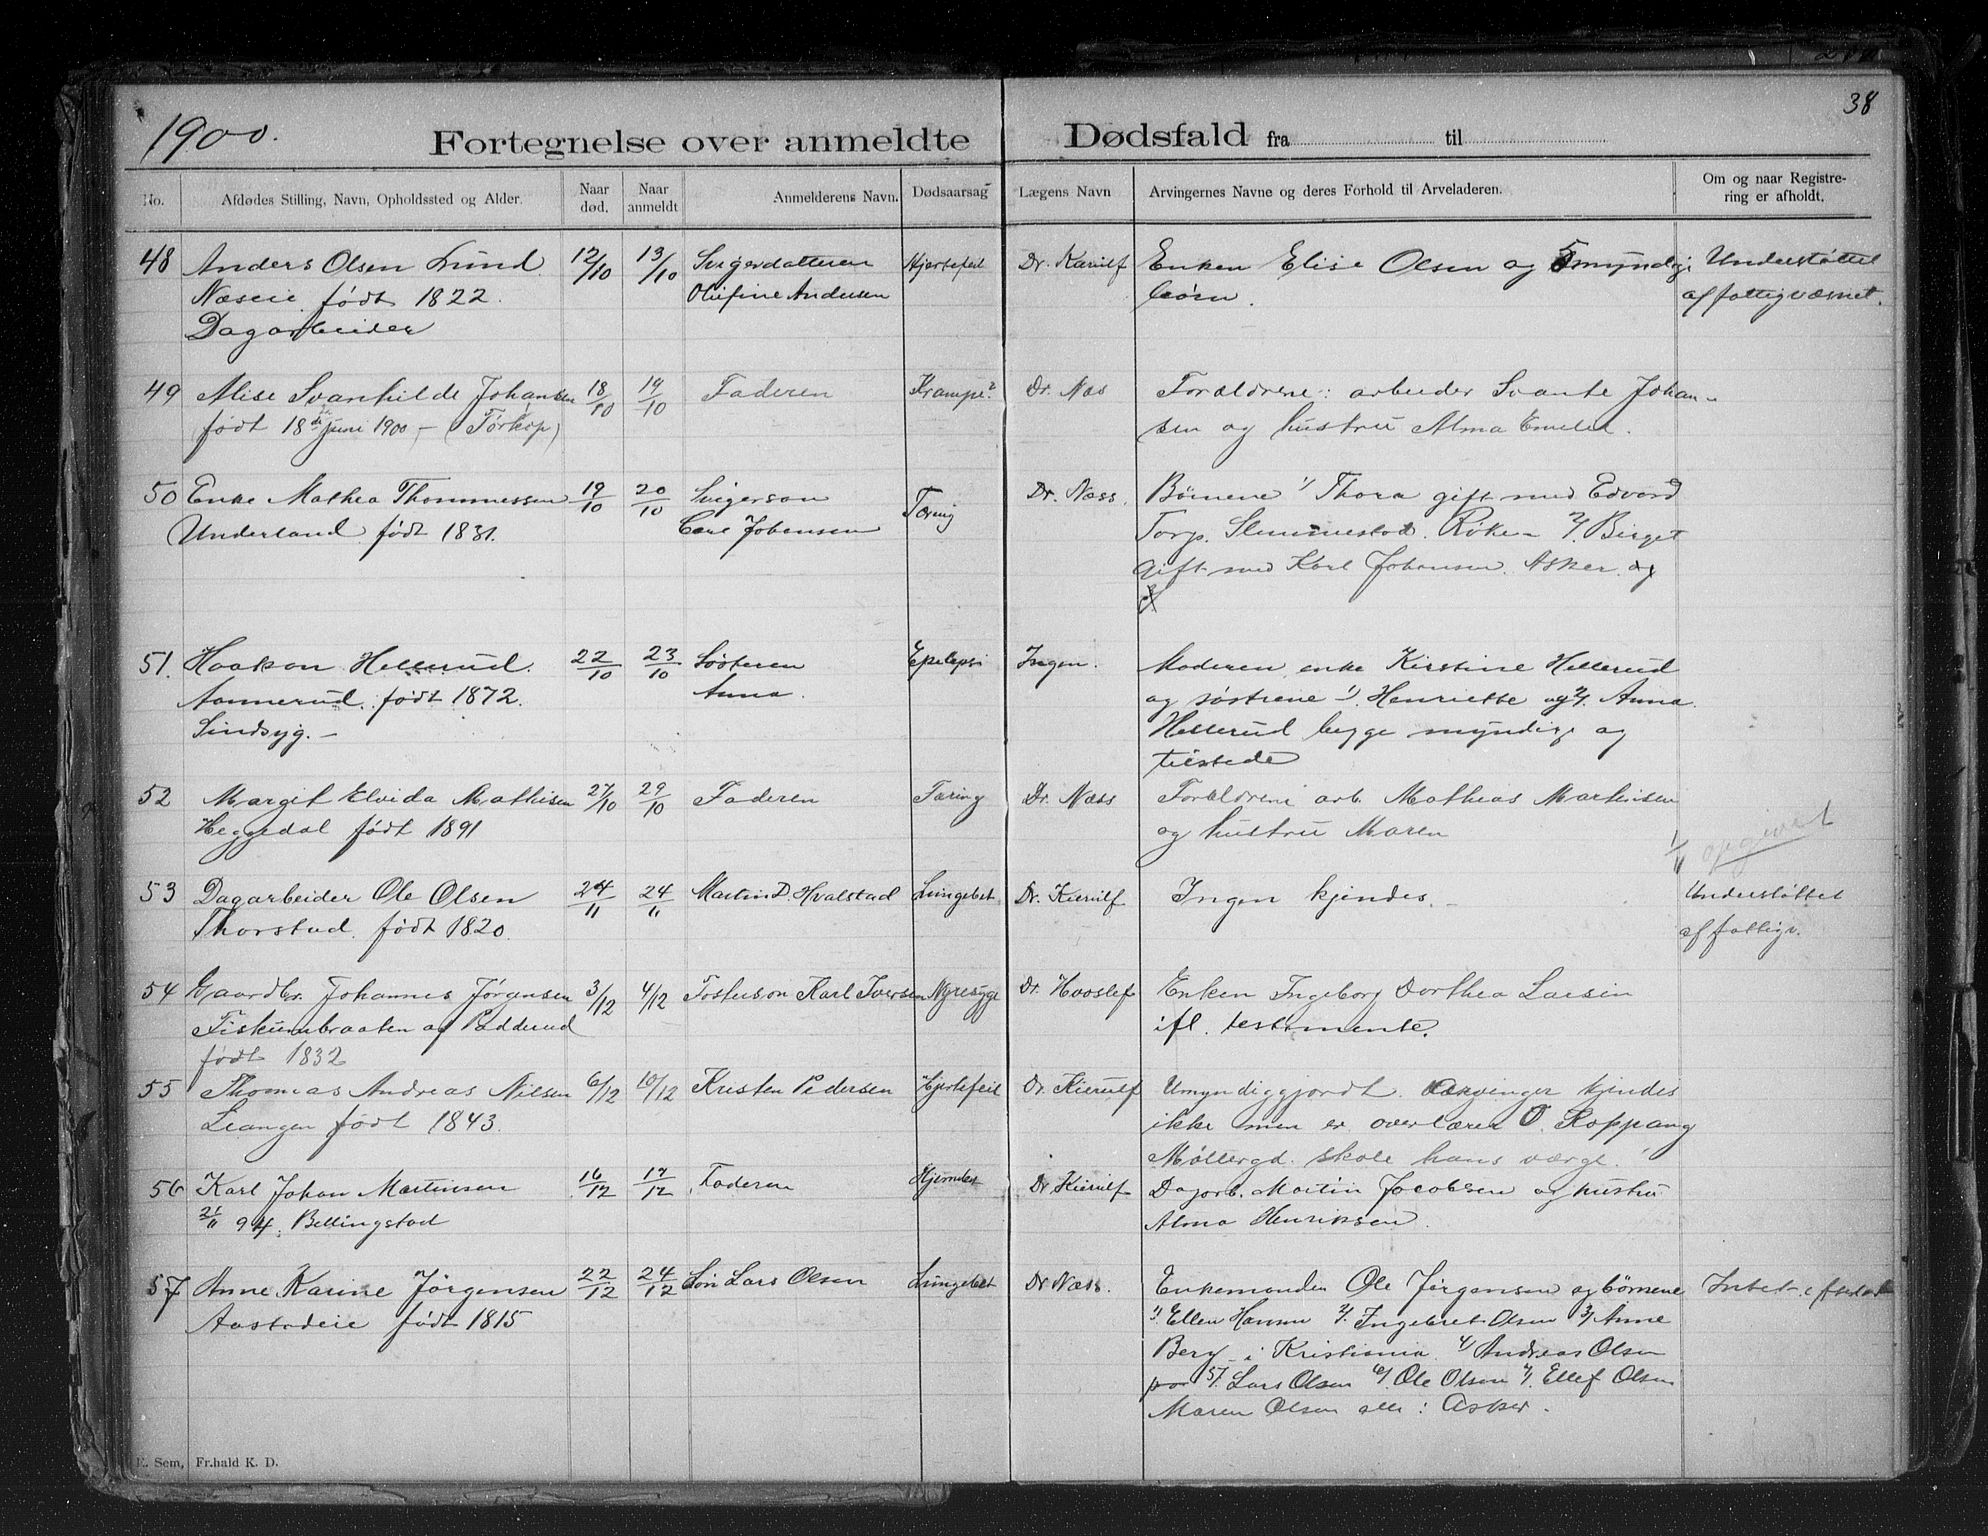 38
1900.
Fortegnelse over anmeldte Dødsfald fra til
No.
Afdødes Stilling, Navn, Opholdssted og Alder.
Naar død.
Naar anmeldt
Anmelderens Navn.
Dødsaarsag
Lægens Navn
Arvingernes Navne og deres Forhold til Arveladeren.
Om og naar Registre-
ring er afholdt.
48 Anders Olsen Lund 12/10 13/10 Svigerdatteren Hjertefeil Dr. Kierulf Enken Elise Olsen og 5 myndige Understøttet
Næseie født 1822. Olefine Andersen børn. af fattigvæsnet.
Dagarbeider
49 Alise Svanhilde Johansen 18/10 19/10 Faderen Krampe? Dr. Næs Forældrene: arbeider Svante Johan-
født 18de Juni 1900 - (Tørkop) sen og hustru Alma Emelie.
50 Enke Mathea Thommessen 19/10 20/10 Svigersøn Tæring Dr. Næss. Børnene 1/ Thora gift med Edvard
Underland født 1831. Carl Johansen Torp. Slemmestad. Røken 2/. Birget
gift med Karl Johansen. Asker. og
3/
51. Haakon Hellerud. 22/10 23/10 Søsteren Epelepsi Ingen. Moderen, enke Kirstine Hellerud
Aannerud. født 1872. Anna. og søstrene 1/. Henriette og 2/. Anna
Sindsyg. - Hellerud begge myndige og
tilstede
52 Margit Elvida Mathisen 27/10 29/10 Faderen Tæring Dr. Næss Forældrene arb. Mathias Martinsen
Heggedal født 1891 og hustru Maren
1/11 opgivet
53 Dagarbeider Ole Olsen 24/11 24/11 Martin D. Hvalstad Lungebet. Dr. Kierulf Ingen kjendes. - Understøttet
Thorstad. født 1820. af fattigv.
54 Gaardbr. Johannes Jørgensen 3/12 4/12 Fostersøn Karl Iversen Nyresyge Dr. Enken Ingeborg Dorthea Larsen
Fiskumbraaten af Padderud ifl. testamente.
født 1832
55 Thomas Andreas Nilsen 6/12 10/12 Kristen Pedersen Hjertefeil Dr. Kierulf Umyndiggjordt. Arvinger kjendes
Leangen født 1843. ikke men er overlærer O. Koppang
Møllergd. skole hans værge.
56 Karl Johan Martinsen 16/12 17/12 Faderen Dr Kierulf Dagarb. Martin Jacobsen og hustru
21/11 94. Billingstad Alma Henriksen.
57 Anne Karine Jørgensen 22/12 24/12 Søn Lars Olsen Lungebet Dr Næss. Enkemanden Ole Jørgensen og børnene
Aastadeie født 1815 1/. Ellen Hansen 2/. Ingebret Olsen 3/ Anne
Berg i Kristiania 4/ Andreas Olsen
5/. Lars Olsen 6/. Ole Olsen 7/. Ellef Olsen
Maren Olsen alle i Asker.
E. Sem, Fr.hald K. D.